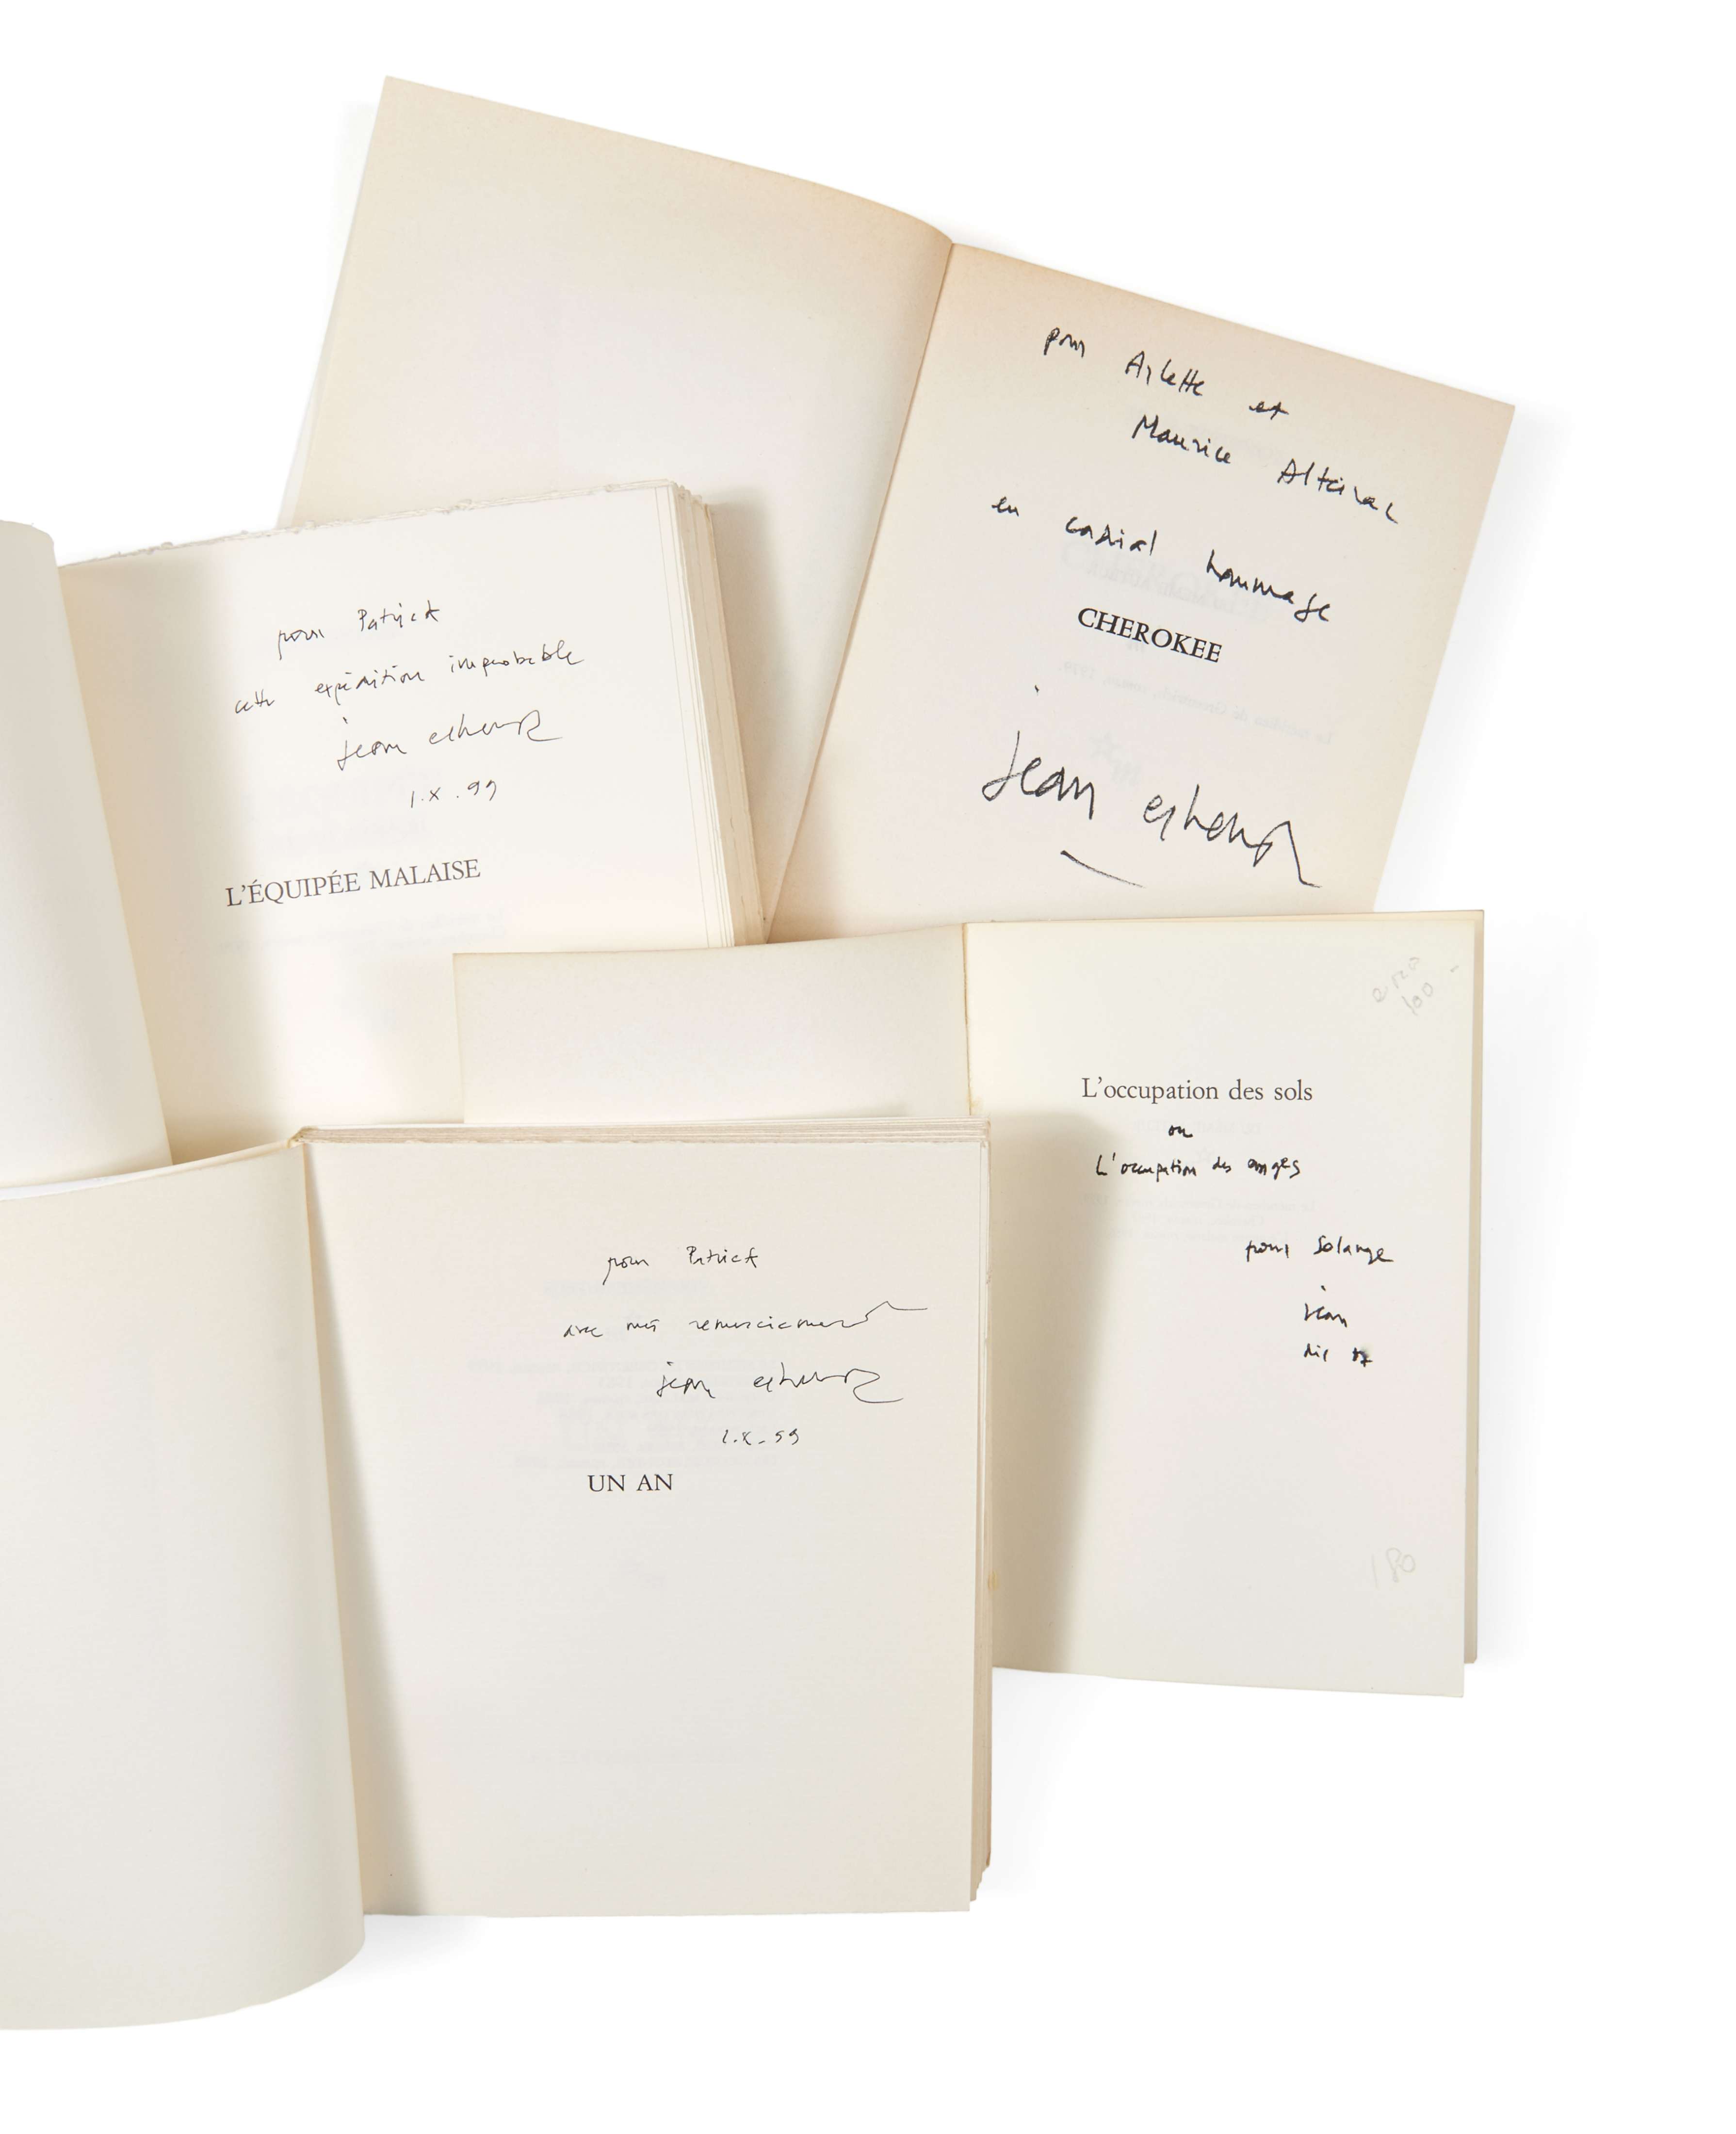 pour Arlette et
Maurice Altairac
en cordial hommage
CHEROKEE
jean echenoz
pour Patrick
cette expédition improbable
jean echenoz
1.X.99
L'ÉQUIPÉE MALAISE
L'occupation des sols
ou
L'occupation des anges
pour Solange
jean
180
pour Patrick
avec mes remerciements
jean echenoz
1.X.99
UN AN